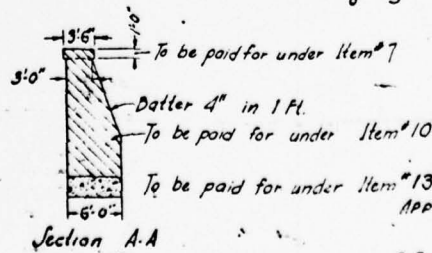 3'6"
1'-0"
To be paid for under Item #7
3'-0"
Batter 4" in 1 Ft.
To be paid for under Item #10
To be paid for under Item #13
APP
6'-0"
Section A-A